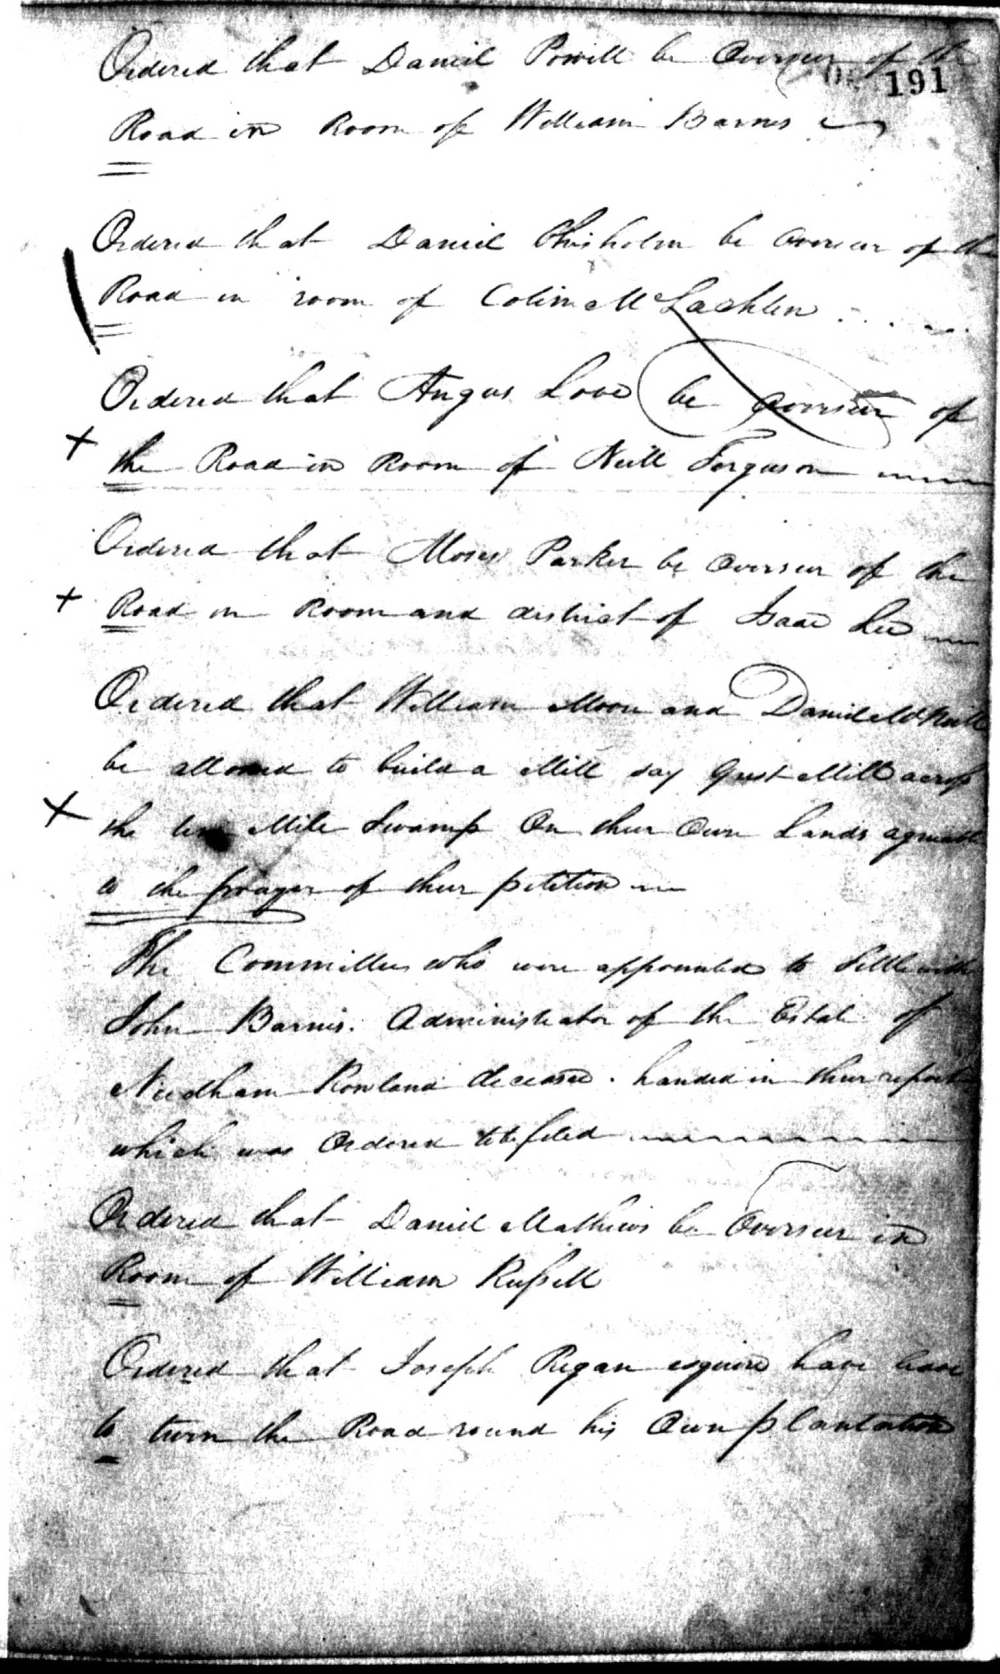 Ordered that Daniel Powell be Overseer of the
191
Road in Room of William Barnes
Ordered that Daniel Chisholm be Overseer of the
Road in room of Colin McLachlin
Ordered that Angus Love be Overseer of
the Road in Room of Neill Ferguson
Ordered that Moses Parker be Overseer of the
Road in Room and district of Isaac Lee
Ordered that William Moore and Daniel
be allowed to build a Mill say Grist Mill across
the ten Mile Swamp On their Own Lands agreeable
to the prayer of their petition
The Committee who were appointed to Settle with
John Barnes Administrator of the Estate of
Needham Rowland deceased. handed in their report
which was Ordered to be filed
Ordered that Daniel Mathews be Overseer in
Room of William Russell
Ordered that Joseph Regan esquire have leave
to turn the Road round his Own plantation